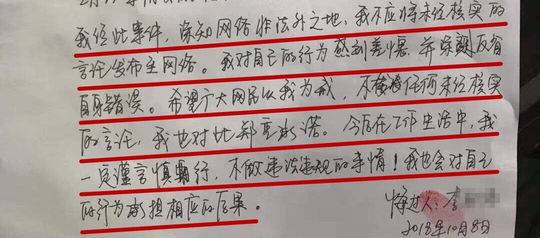 我经此事件，深知网络非法外之地，我不应将未经核实的
言论发布至网络。我对自己的行为感到羞愧，并深刻反省
自身错误。希望广大网民以我为戒，不发任何未经核实
的言论，我也对此郑重承诺。今后在工作生活中，我
一定谨言慎行，不做违法违规的事情！我也会对自己
的行为承担相应的后果。
悔过人：李
2018年10月8日